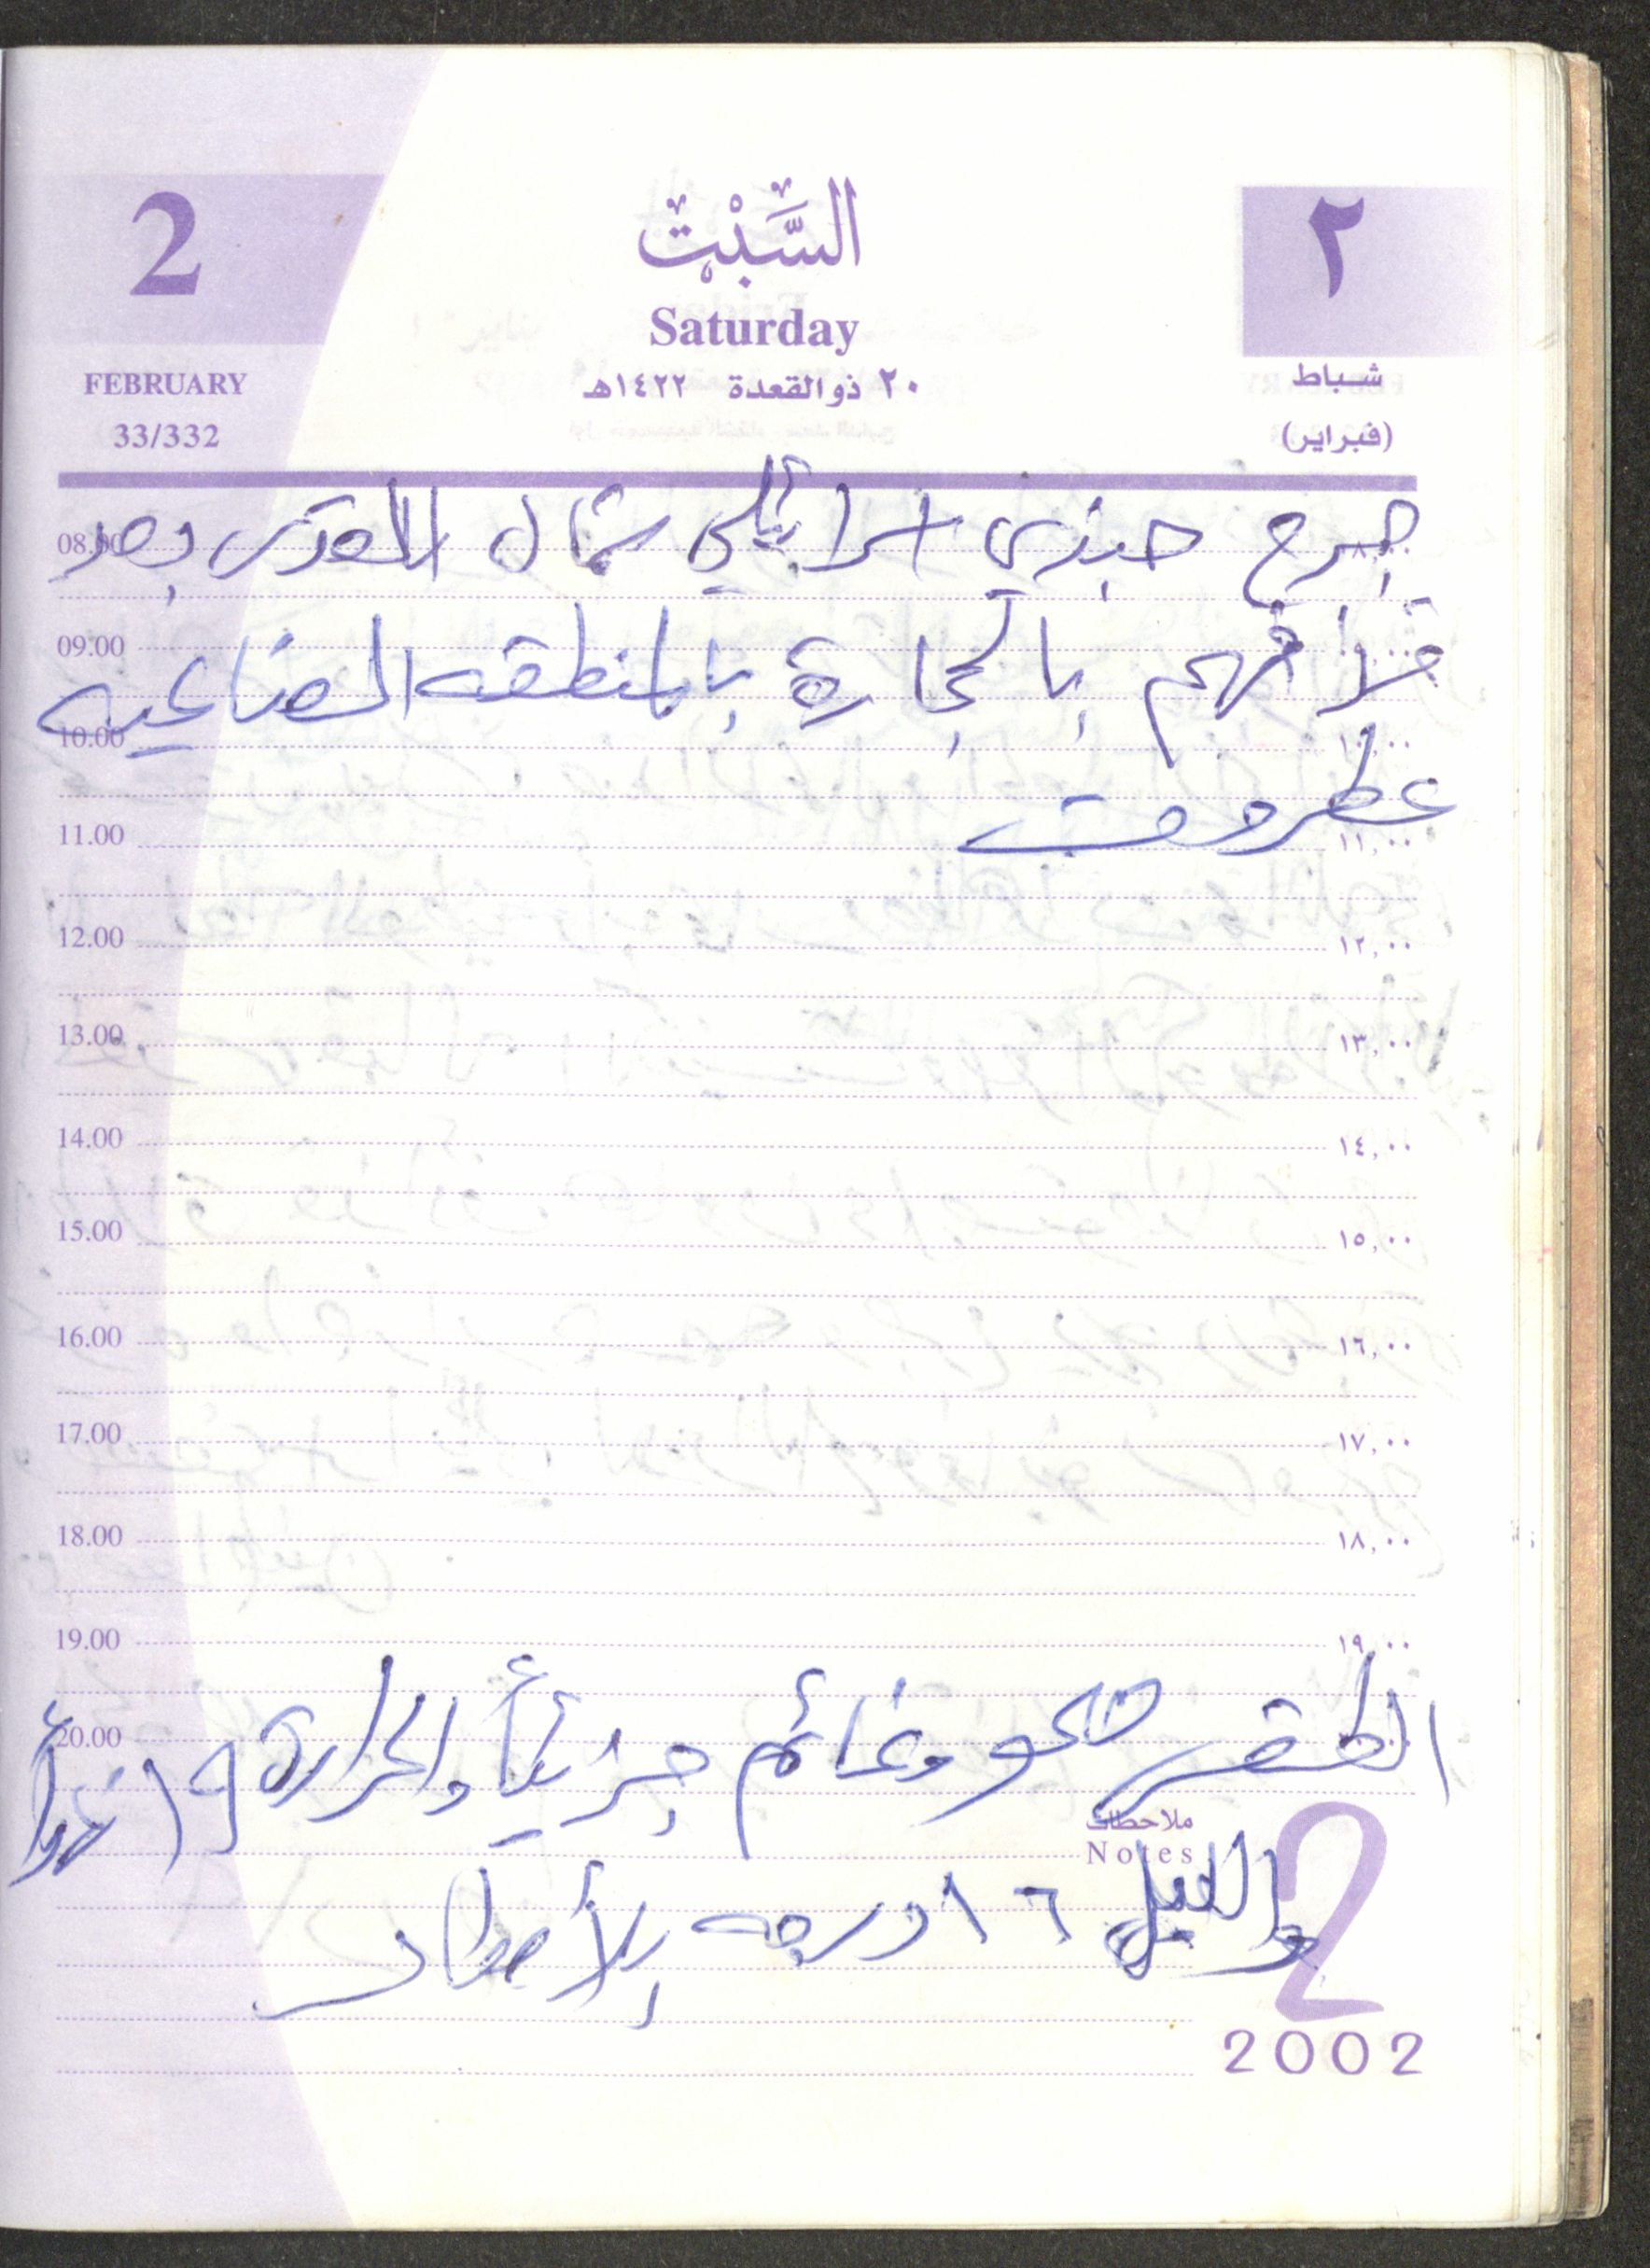 2
السَّبْت
٢
Saturday
FEBRUARY
٢٠ ذو القعدة ١٤٢٢هـ
شباط
33/332
(فبراير)
جرح جندي اسرائيلي شمال القدس بعد
08.00
قذفهم بالحجارة بالمنطقه الصناعيه
09.00
10.00 ١٠,٠٠
عطروت
11.00 ١١,٠٠
12.00 ١٢,٠٠
13.00 ١٣,٠٠
14.00 ١٤,٠٠
15.00 ١٥,٠٠
16.00 ١٦,٠٠
17.00 ١٧,٠٠
18.00 ١٨,٠٠
19.00 ١٩,٠٠
الطقس صحو وغائم جزئياً والحرارة ١٩ نهاراً
20.00
ملاحظات
Notes
والليل ١٦ درجه
2
2002